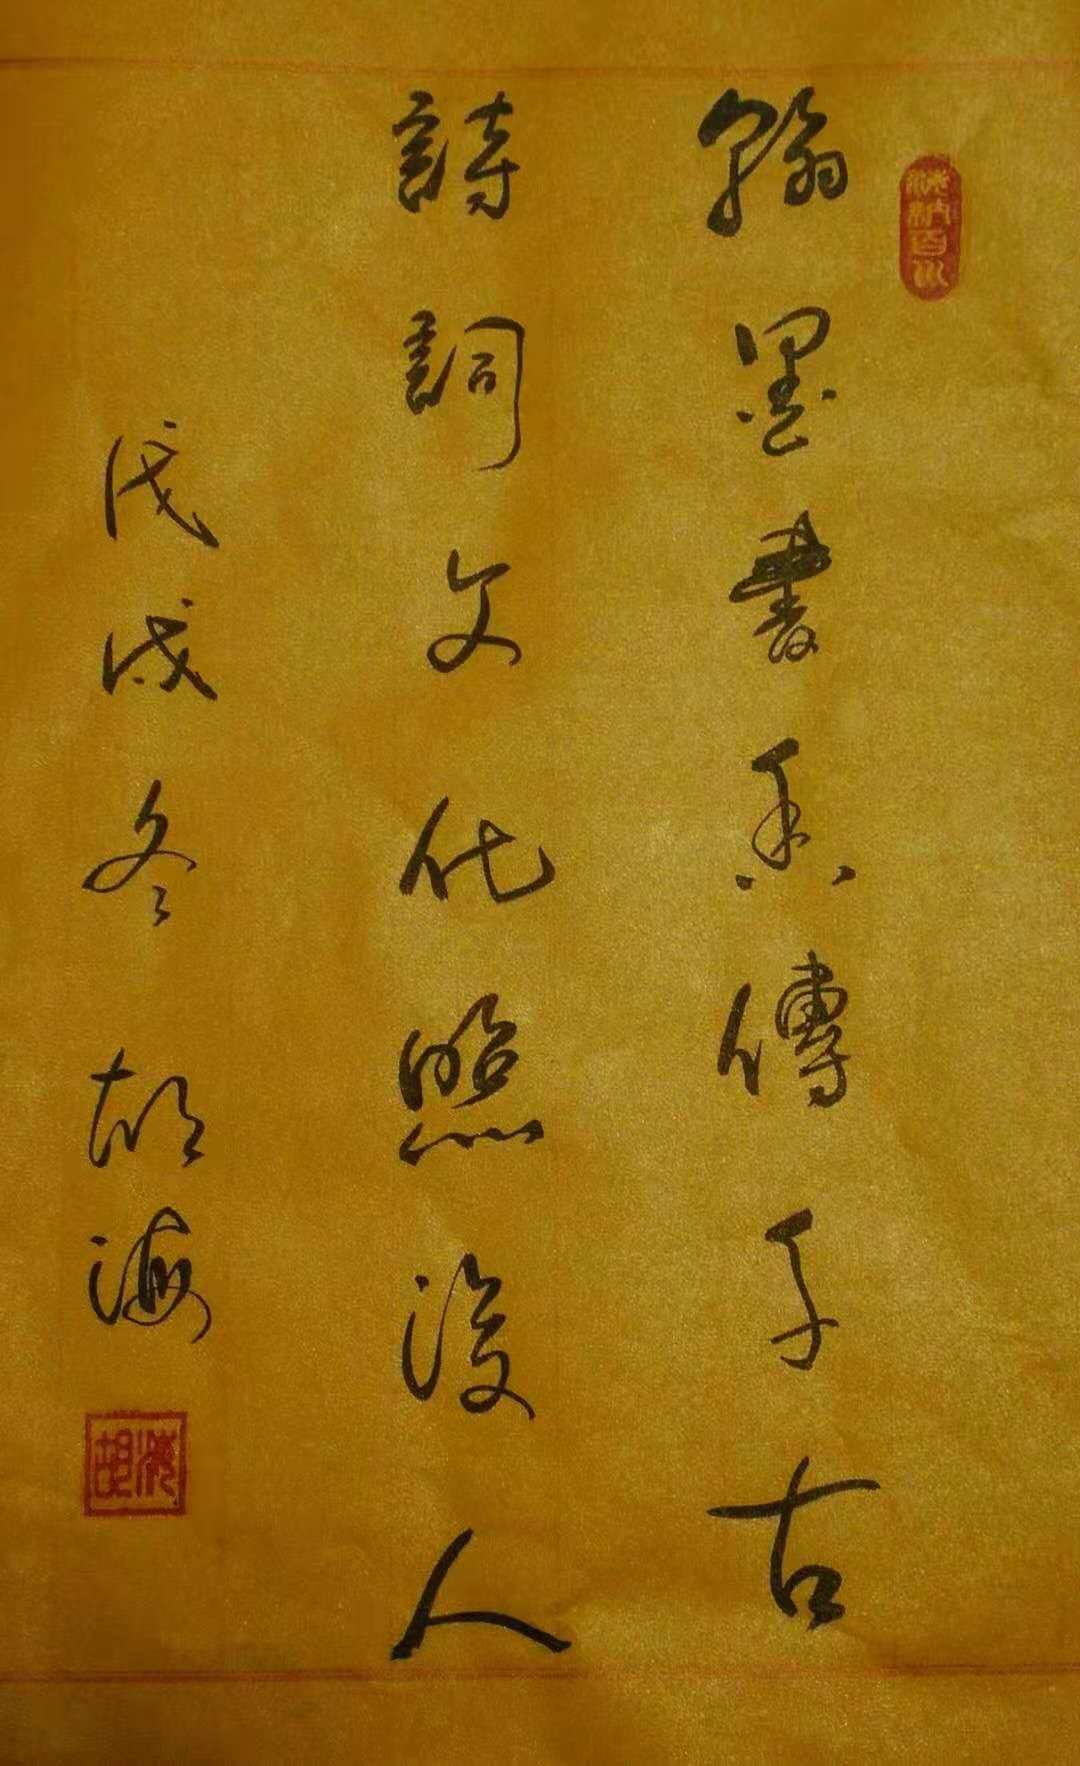 海納百川
翰墨書香傳千古
詩詞文化照後人
戊戌冬 胡海
胡海